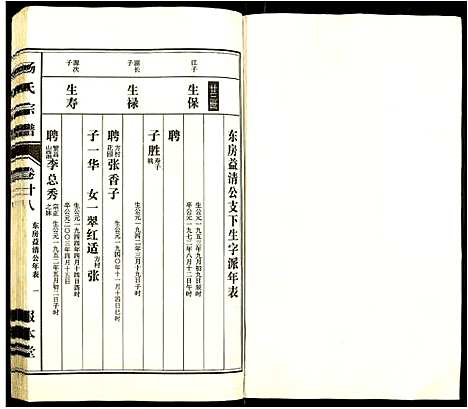 东房益清公支下生字派年表
廿三世
江子
生保
生公元一九五三年九月初九日辰时
卒公元一九七二年八月十二日午时
聘
子胜
寿子
祧
源长
子
生禄
生公元一九四二年三月十九日子时
聘
方村
花园
张香子
生公元一九四〇年十一月十四日巳时
子一华 女一翠红适方村张
源次
子
生寿
生公元一九四四年四月十四日酉时
卒公元二〇〇三年四月十五日
聘
繁昌
山西湖
李总秀
宗正
之妹
生公元一九五二年五月初二日子时
杨氏宗谱
卷廿八
东房益清公年表
一
报本堂